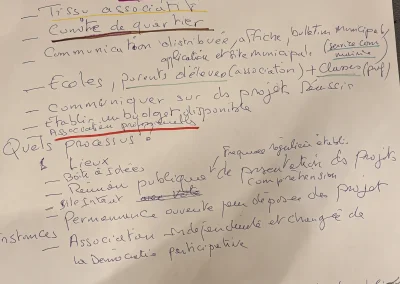 — Tissu associatif
— Comité de quartier
— Communication distribuée, affiche, bulletin municipal,
application et site municipal (service com mairie)
— Ecoles, parents d'élèves (association) + Classes (prof)
— Communiquer sur des projets réussis
— Etablir un budget disponible
— Association
Quels processus?
Lieux
— Boîte à idées
— Réunion publique de présentation des projets
compréhension
avec vote
— Permanence ouverte pour déposer des projet
instances — Association indépendante et chargée de
la Démocratie participative